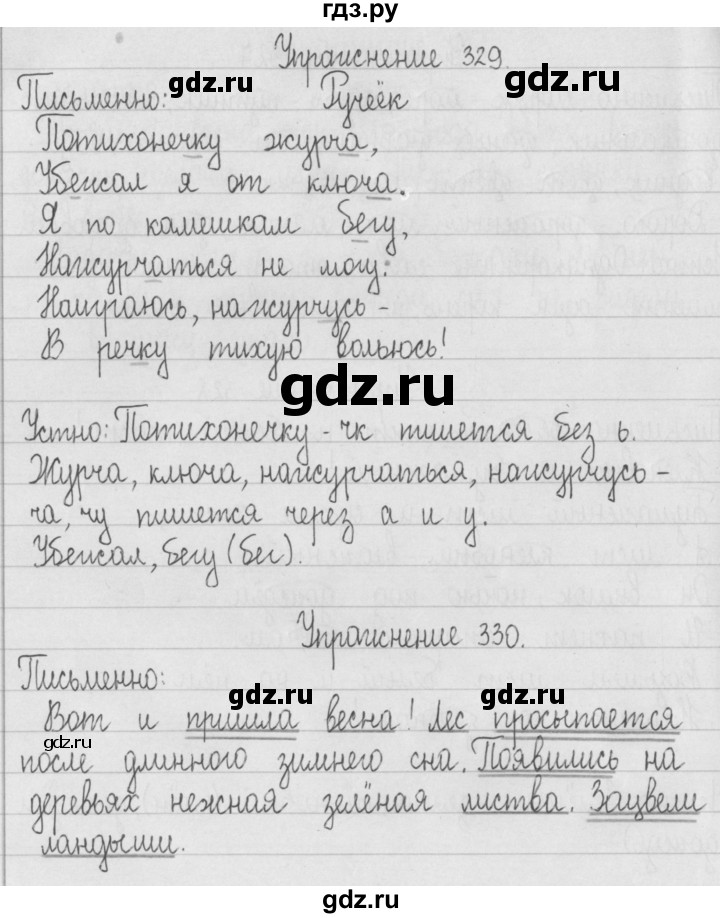 гдз.ру
Упражнение 329.
gdz.ru gdz.ru
Письменно: Ручеёк
Потихонечку журча,
Убежал я от ключа.
Я по камешкам бегу,
Нажурчаться не могу:
Наиграюсь, нажурчусь -
В речку тихую вольюсь!
gdz.ru
Устно: Потихонечку - чк пишется без ь.
Журча, ключа, нажурчаться, нажурчусь -
ча, чу пишется через а и у.
Убежал, бегу (бег).
Упражнение 330.
Письменно:
gdz.ru gdz.ru
Вот и пришла весна! Лес просыпается
gdz.ru
после длинного зимнего сна. Появились на
деревьях нежная зелёная листва. Зацвели
ландыши.
gdz.ru